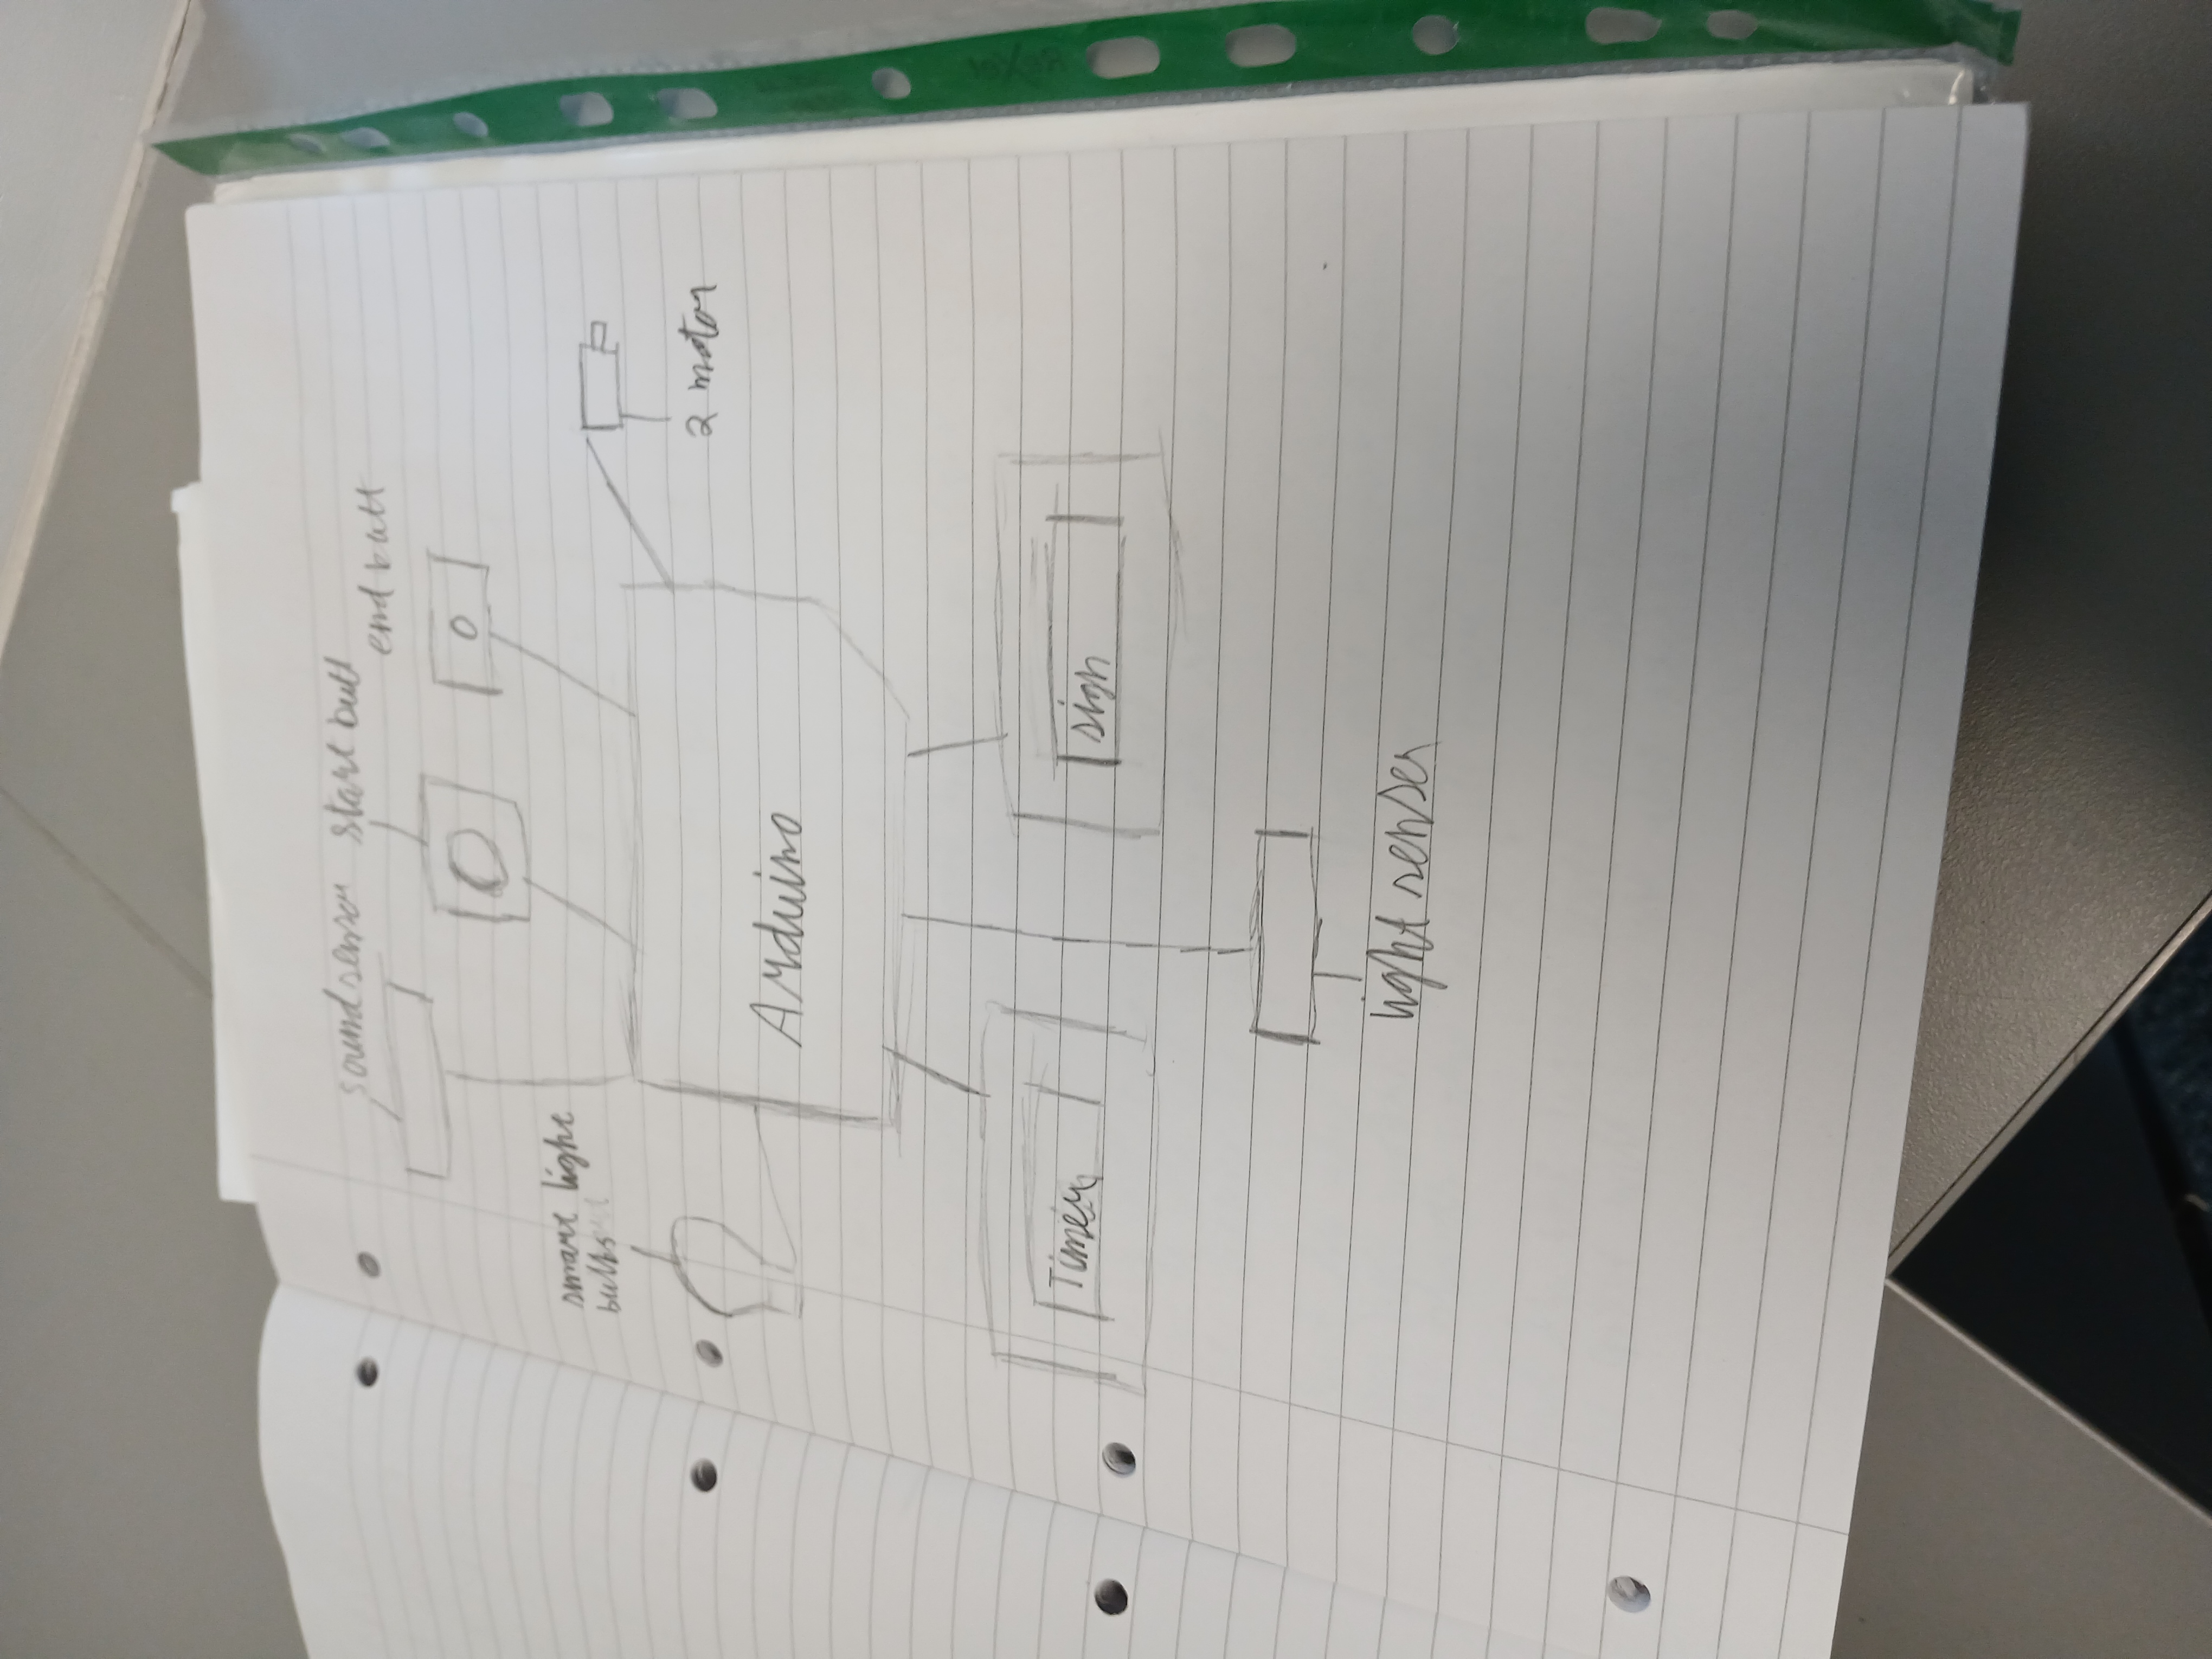 sound sensor
start butt
end butt
smart light
bulbs
2 motor
Arduino
Timer
sign
light senser